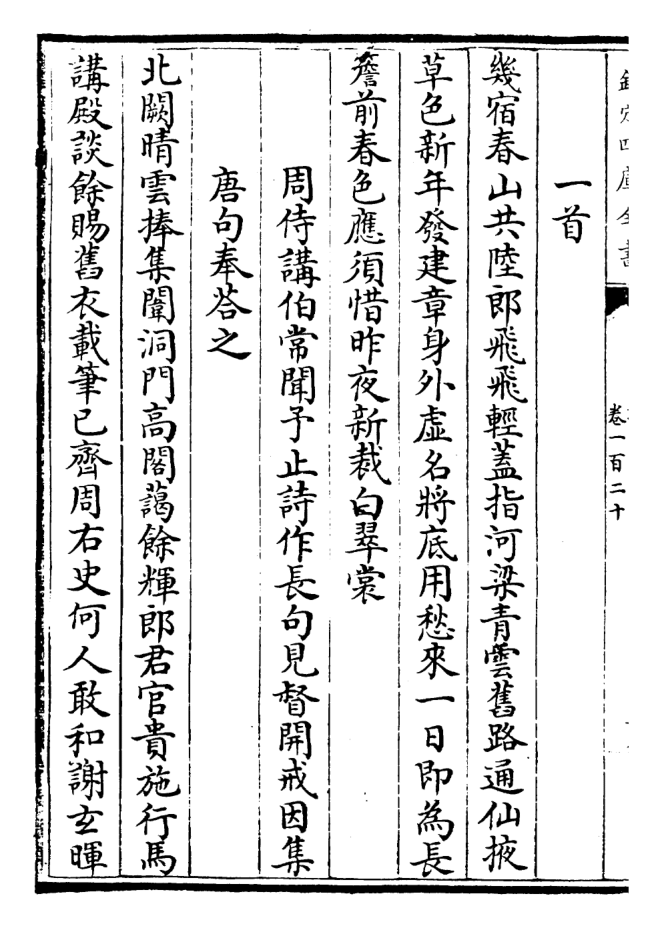 欽定四庫全書
卷一百二十
一首
幾宿春山共陸郎飛飛輕蓋指河梁青雲舊路通仙掖
草色新年發建章身外虛名將底用愁來一日即為長
簷前春色應須惜昨夜新裁白翠裳
周侍講伯常聞予止詩作長句見督開戒因集
唐句奉答之
北闕晴雲捧集闈洞門高閣藹餘輝郎君官貴施行馬
講殿談餘賜舊衣載筆已齊周右史何人敢和謝玄暉